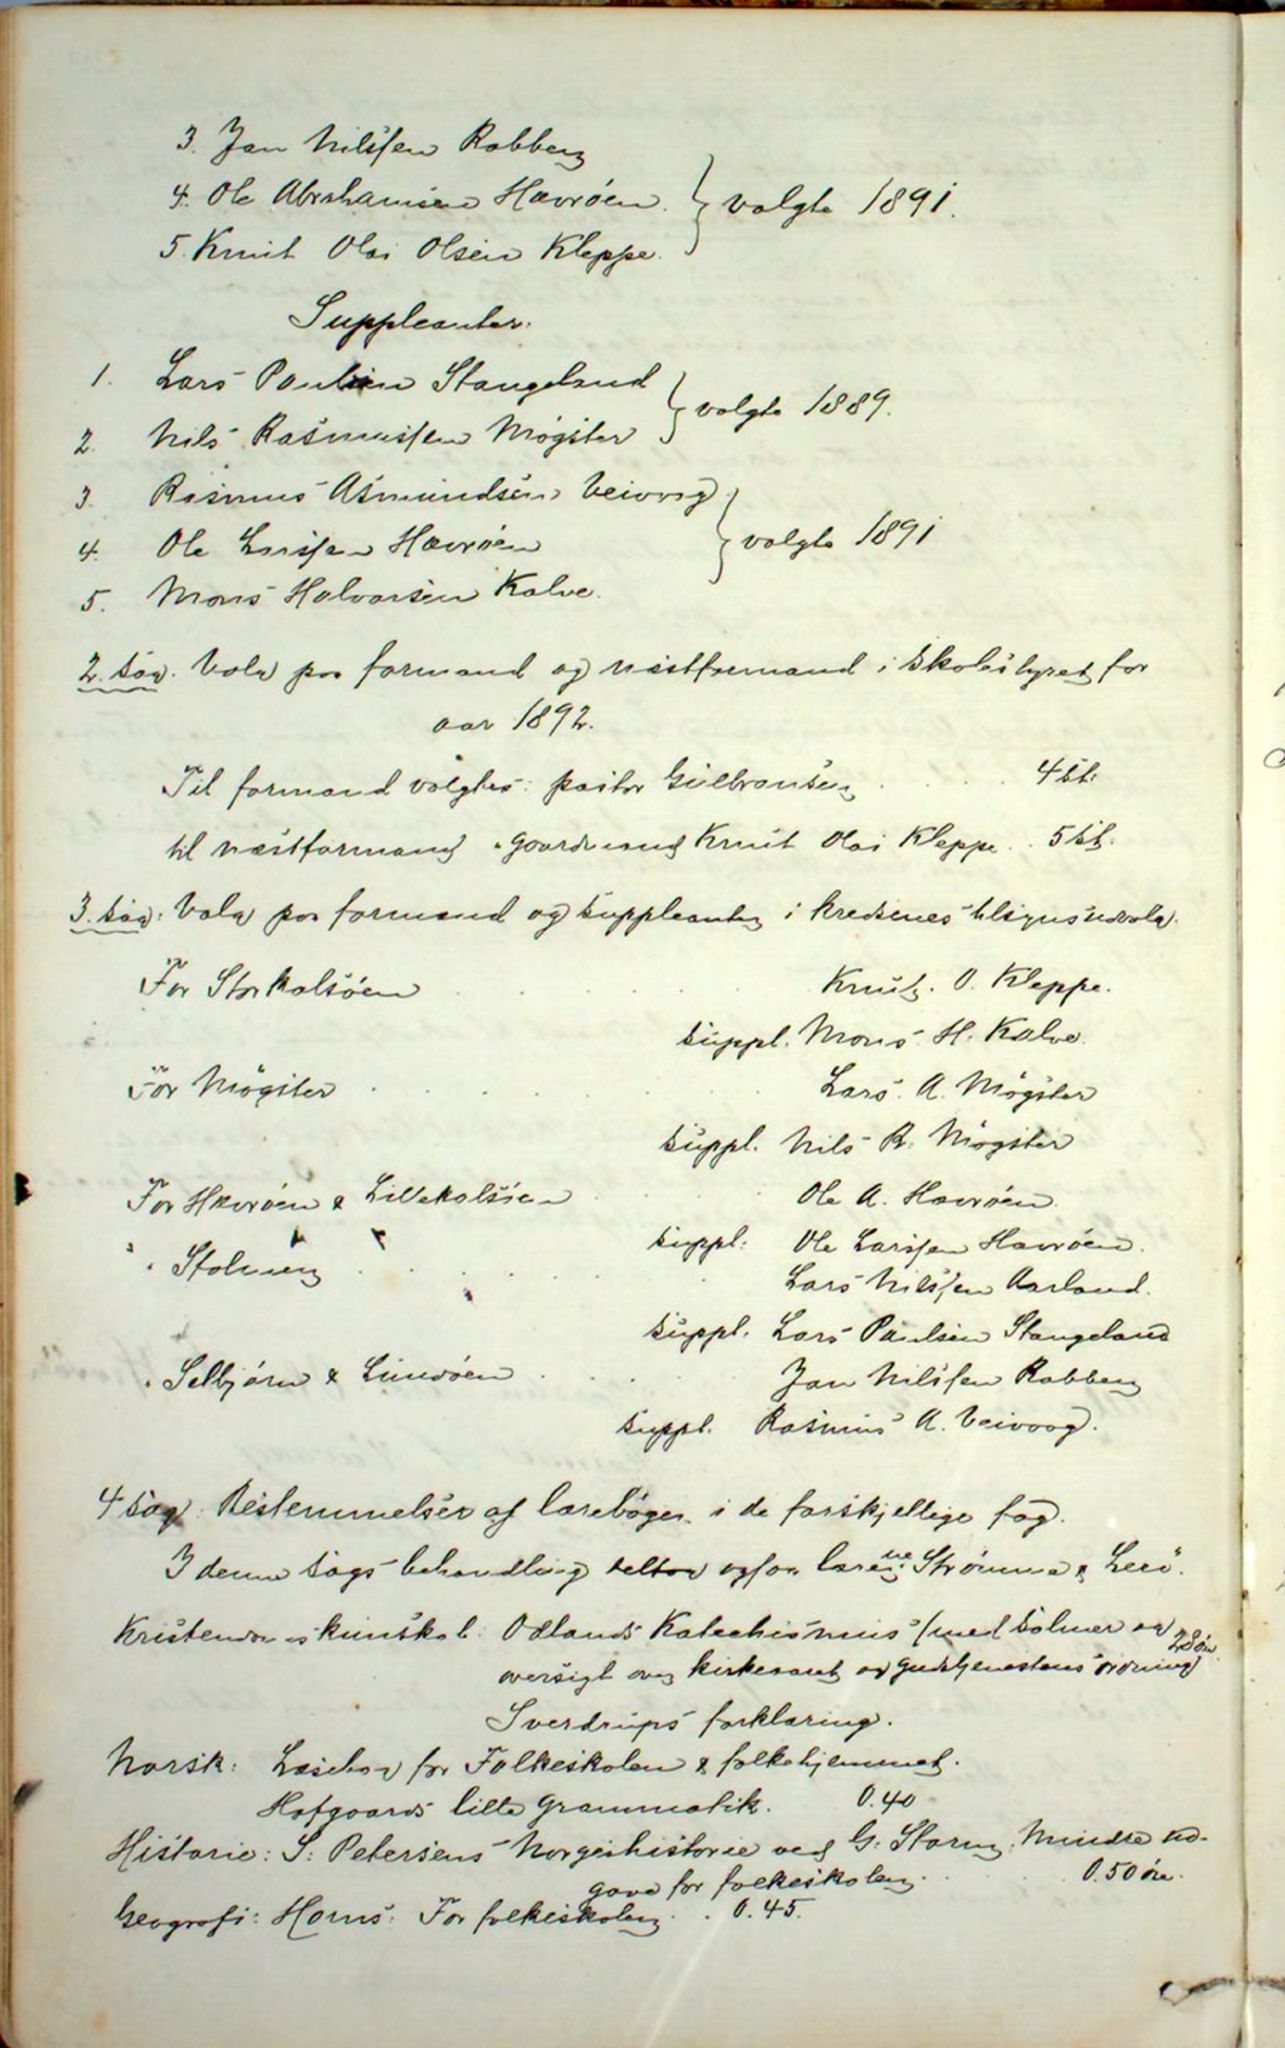 3. Jan Nilssen Rabben
4. Ole Abrahamsen Hævrøen } valgte 1891.
5. Knut Olai Olsen Kleppe.
Suppleanter:
1. Lars Paulsen Stangeland } valgte 1889.
2. Nils Rasmussen Møgster
3. Rasmus Asmundsen Veivaag
4. Ole Larssen Hævrøen } valgte 1891
5. Mons Halvorsen Kalve.
2. sag. Valg paa formand og næstformand i skolestyret for
aar 1892.
Til formand valgtes: pastor Gulbransen . . . 4 st.
til næstformand " gaardmand Knut Olai Kleppe . . 5 st.
3. sag: Valg paa formænd og suppleanter i kredsenes tilsynsudvalg.
For Storkalsøen . . . Knut. O. Kleppe.
suppl. Mons H. Kalve.
For Møgster . . . Lars. A. Møgster
suppl. Nils R. Møgster
For Hævrøen & Lillekalsøen . . . Ole A. Hævrøen
suppl: Ole Larssen Hævrøen.
" Stolmen . . . Lars Nilssen Aarland.
suppl. Lars Paulsen Stangeland
" Selbjørn & Lunøen . . . Jan Nilssen Rabben
suppl. Rasmus A. Veivaag.
4 sag. Bestemmelser af lærebøger i de forskjellige fag.
I denne sags behandling deltog ogsaa lærerne Strømme & Lerø.
Kristendomskunskab: Odlands Katechismus (med salmer og 28 øre
oversigt over kirkeaaret og gudstjenestens ordning)
Sverdrups forklaring.
Norsk: Læsebog for Folkeskolen & folkehjemmet.
Hofgaards lille Grammatik. 0.40
Historie: S. Petersens Norgeshistorie ved G. Storm. Mindre ud-
gave for folkeskolen . . . 0.50 øre.
Geografi: Horns: For folkeskolen . . 0.45.